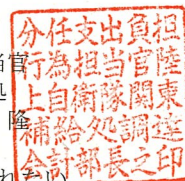 当官
処
隆
分任支出負担
行為担当官陸
上自衛隊関東
補給処調達
会計部長之印